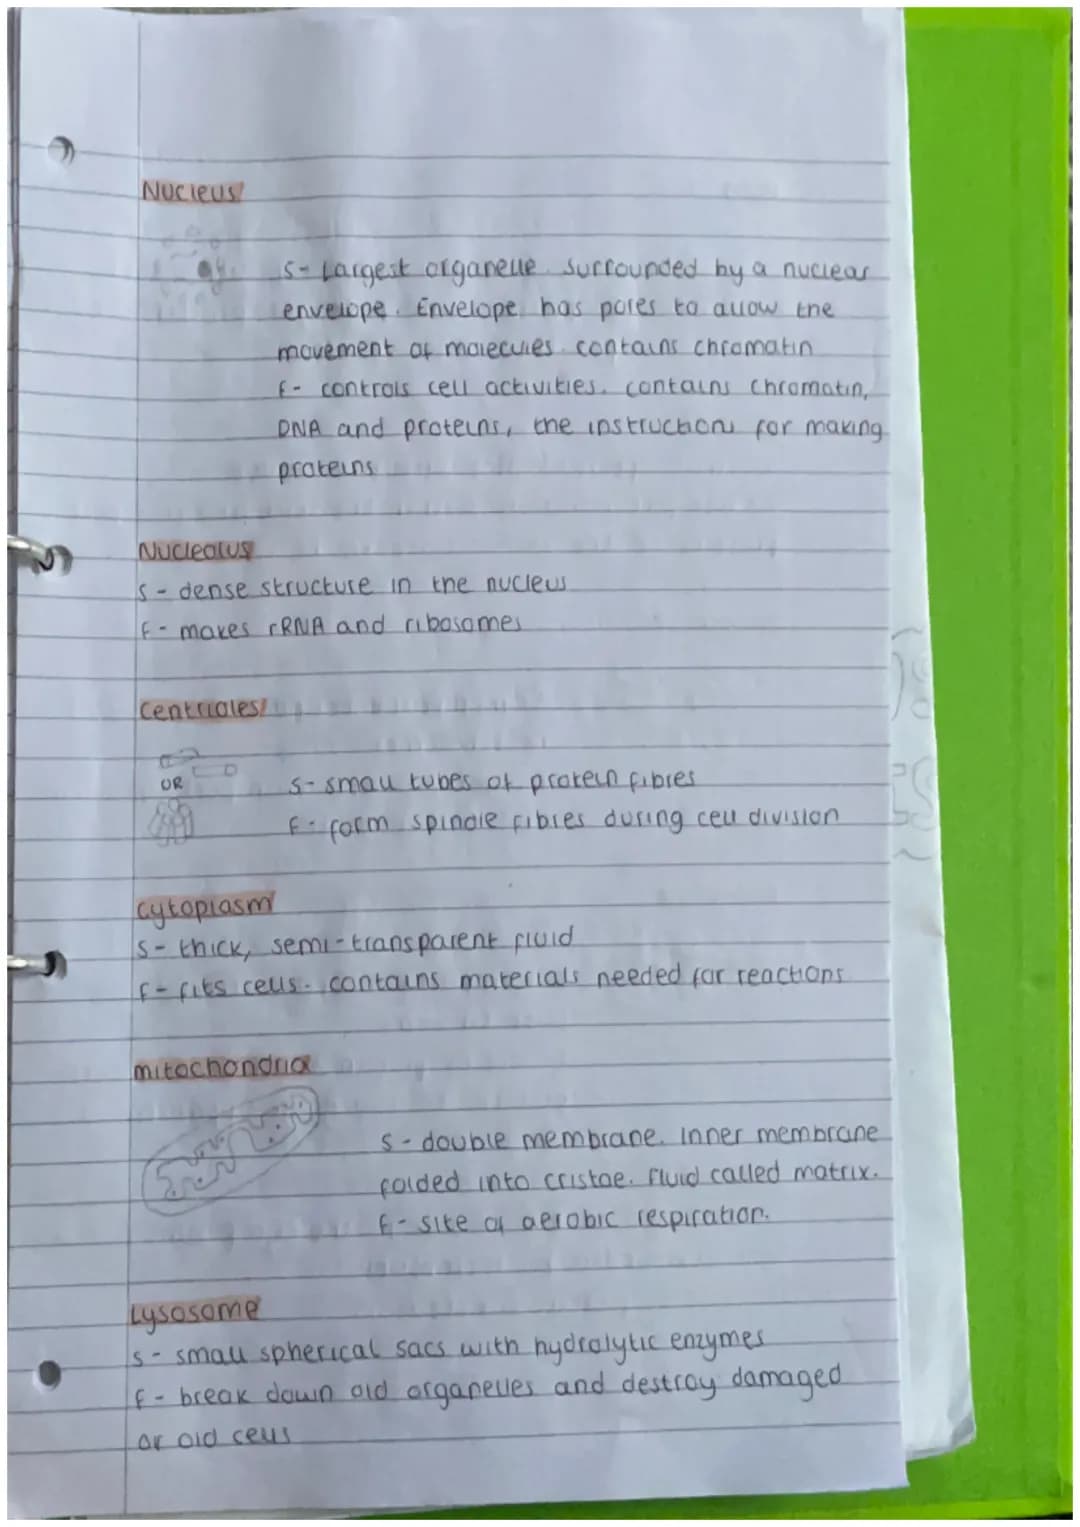 Nucleus
S- Largest organelle. Surrounded by a nuclear
envelope. Envelope has pores to allow the
movement of molecules. contains chromatin
F- controls cell activities. contains chromatin,
DNA and proteins, the instruction for making
proteins
Nucleolus
S- dense structure in the nucleus
F- makes rRNA and ribosomes
Centrioles
OR
S- small tubes of protein fibres
F- form spindle fibres during cell division
cytoplasm
S- thick, semi-transparent fluid
F- fits cells. contains materials needed for reactions
mitochondria
S- double membrane. Inner membrane
folded into cristae. Fluid called matrix.
F- site of aerobic respiration.
Lysosome
S- small spherical sacs with hydrolytic enzymes
F- break down old organelles and destroy damaged
or old cells